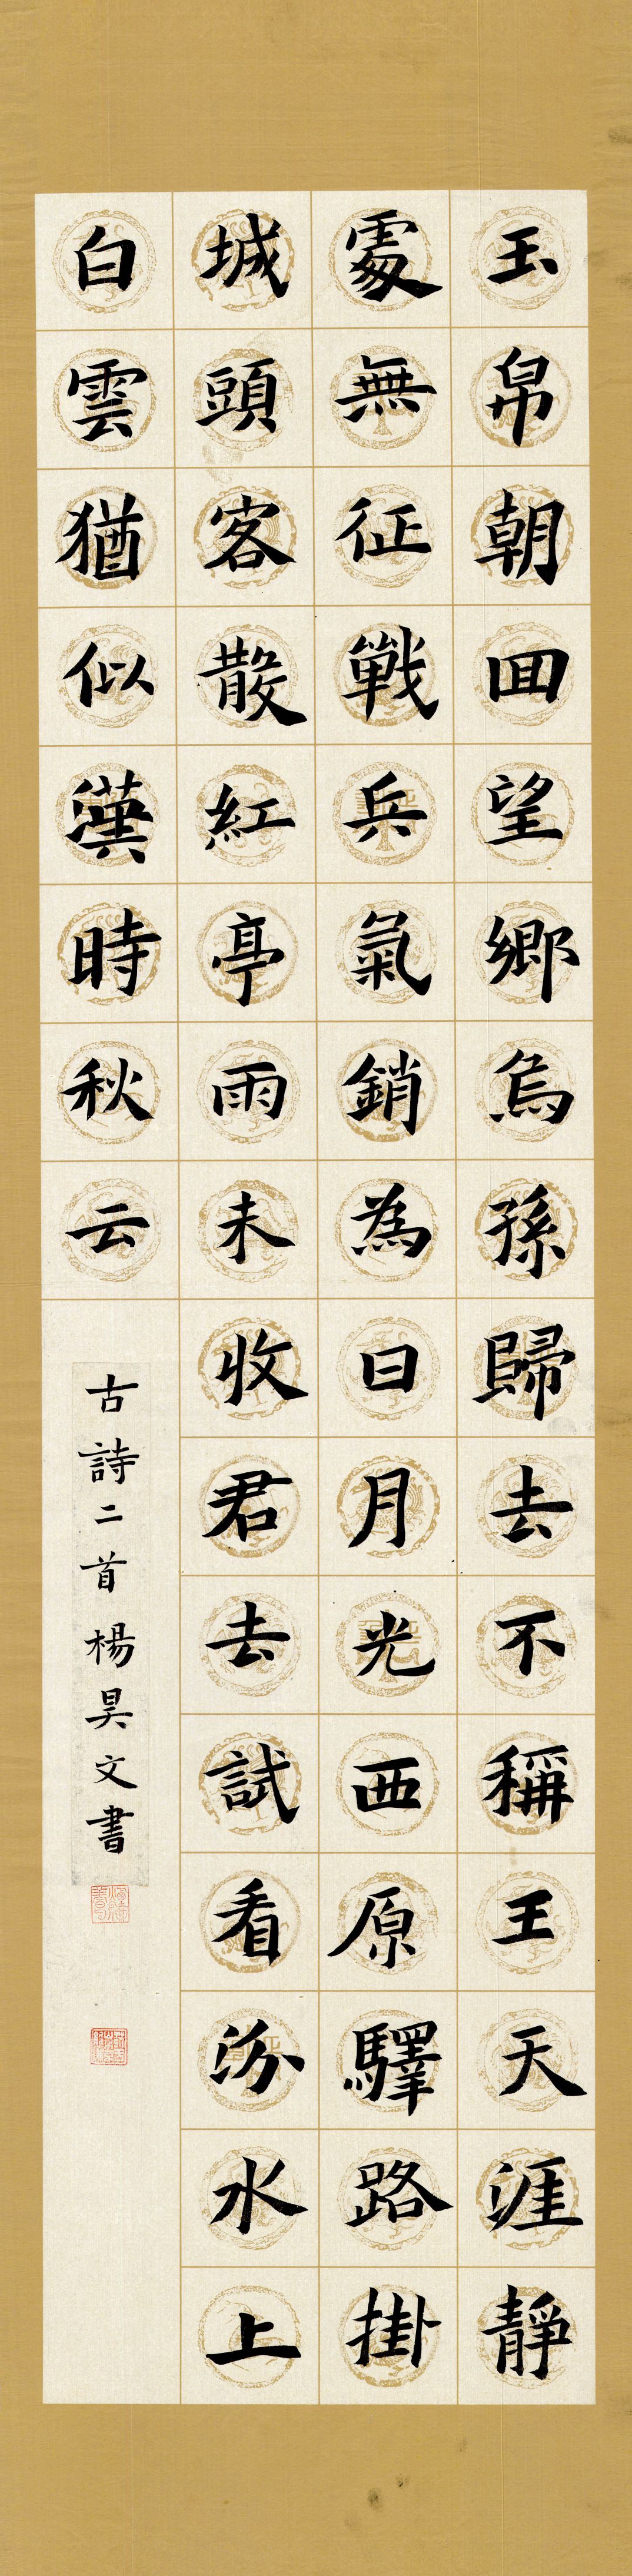 玉帛朝囬望鄉烏孫歸去不稱王天涯靜
處無征戰兵氣銷為日月光西原驛路掛
城頭客散紅亭雨未收君去試看汾水上
白雲猶似漢時秋云
古詩二首楊昊文書